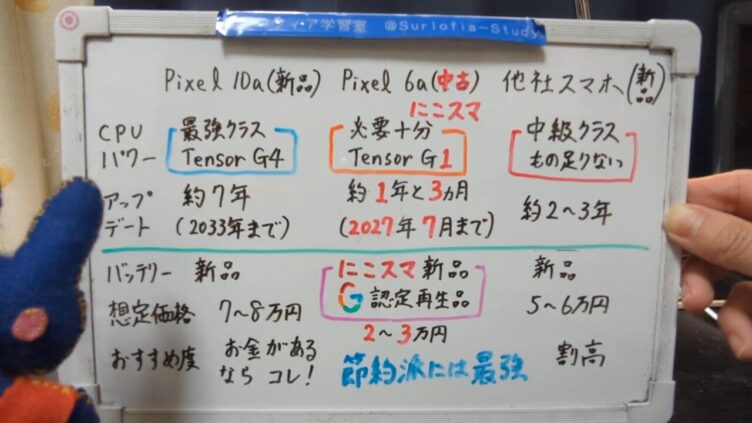 ィア学習室 @Surlofia-Study
Pixel 10a(新品) Pixel 6a(中古) 他社スマホ(新品)
にこスマ
CPUパワー 最強クラス Tensor G4 必要十分 Tensor G1 中級クラス もの足りない
アップデート 約7年 (2033年まで) 約1年と3ヵ月 (2027年7月まで) 約2〜3年
バッテリー 新品 にこスマ新品 G認定再生品 新品
想定価格 7〜8万円 2〜3万円 5〜6万円
おすすめ度 お金があるなら コレ! 節約派には最強 割高